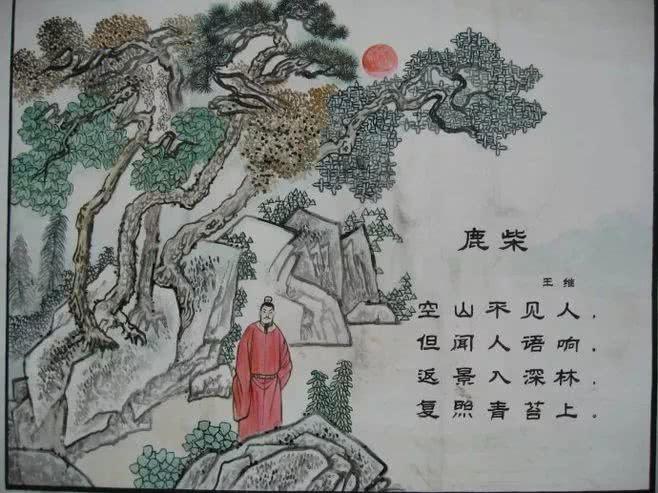 鹿柴
王维
空山不见人，
但闻人语响，
返景入深林，
复照青苔上。